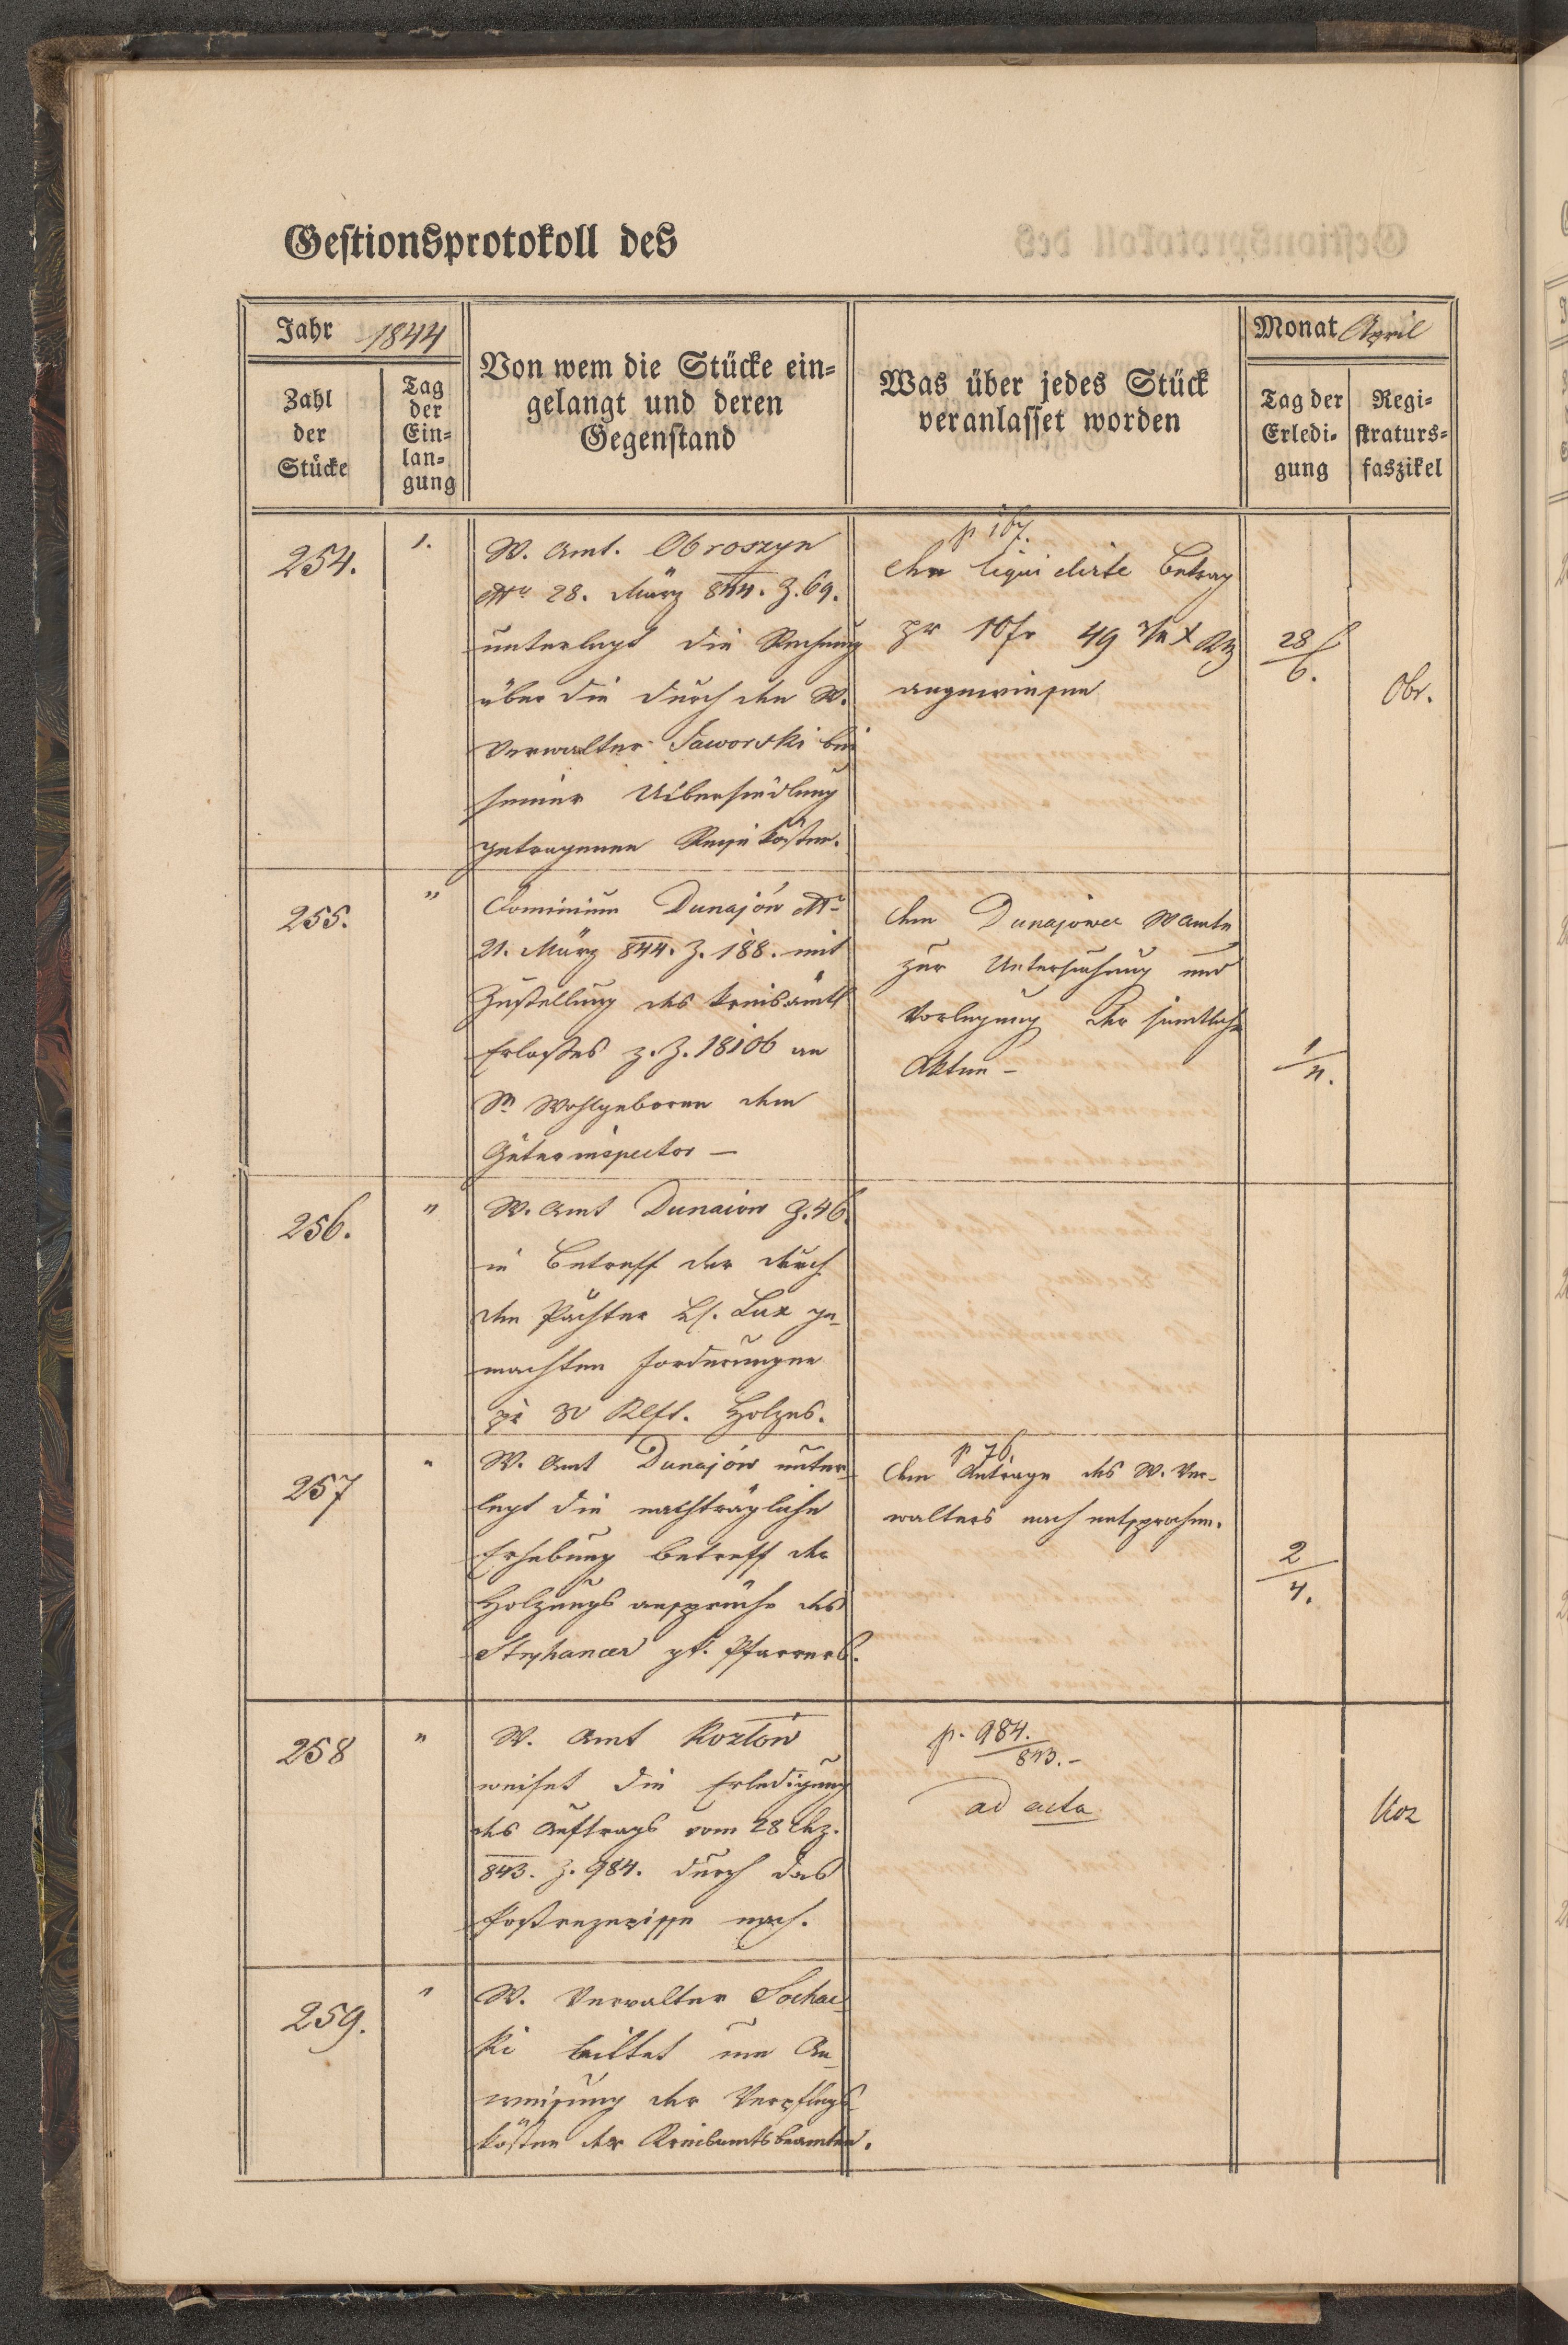 Gestionsprotokoll des
Jahr 1844
Monat April
Zahl der Stücke
Tag der Ein=lan=gung
Von wem die Stücke ein=
gelangt und deren
Gegenstand
Was über jedes Stück
veranlasset worden
Tag der Erledi=gung
Regi=straturs=faszikel
254.
1.
W. Amt. Obroszyn
28. März 844. Z. 69.
unterlegt die Rechnung
über die durch den W.
Verwalter Jaworski bei
seiner Uibersiedlung
getragenen Reise kosten.
p 167.
Den liquidirte Betrag
pr 10 fr 49
angewiesen
28/6.
Obr.
255.
"
Dominium Dunajów
21. März 844. Z. 188. mit
Zustellung des Kreisamts
Erlasses z. Z. 18106 an
Sr Wohlgeboren den
Güterinspector —
Dem Dunajower Wamte
zur Untersuchung und
Vorlegung der sämtlichen
Akten —
1/4.
256.
"
W. Amt Dunaiow Z. 46.
in Betreff der durch
den Pächter Lux ge-
machten Forderungen
pr 30 Klft. Holzes.
257
"
W. Amt Dunajów unter-
legt die nachträgliche
Erhebung betreff der
Holzungs ansprüche des
gk. Pfarrers.
p 76.
Dem Antrage des W. Ver-
walters nach entsprochen.
2/4.
258
"
W. Amt Kozłów
weiset die Erledigung
des Auftrags vom 28 Dez.
843. Z. 984. durch das
Postrezepisse nach.
p. 984./843. -
ad acta
Koz
259.
"
W. Verwalter Sochac-
ki bittet um An-
weisung der Verpflegs-
kosten der Kreisamtsbeamten.